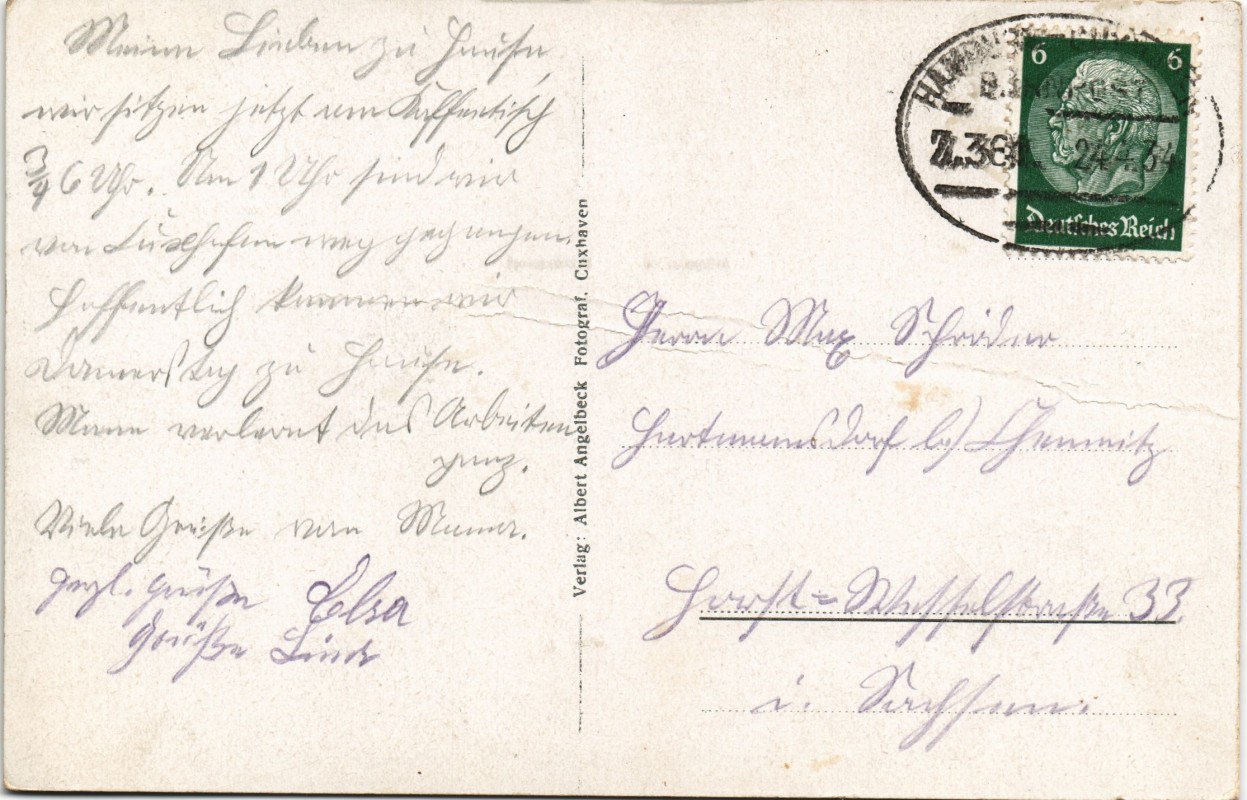 Meine Lieben zu Hause,
wir sitzen jetzt am Kaffeetisch
3/4 6 Uhr. Um 1 Uhr sind wir
von Cuxhafen weg gegangen.
Hoffentlich kommen wir
Donnerstag zu Hause.
Mann verlernt das Arbeiten
ganz.
Viele Grüße von Mama.
Herzl. Grüße Elsa
Grüße
Verlag: Albert Angelbeck Fotograf. Cuxhaven
BAHNPOST
Z.
24.4.34
6 6
Deutsches Reich
Herrn Max Schröder
Hartmannsdorf b/ Chemnitz
Horst=Wesselstraße 33
i. Sachsen.